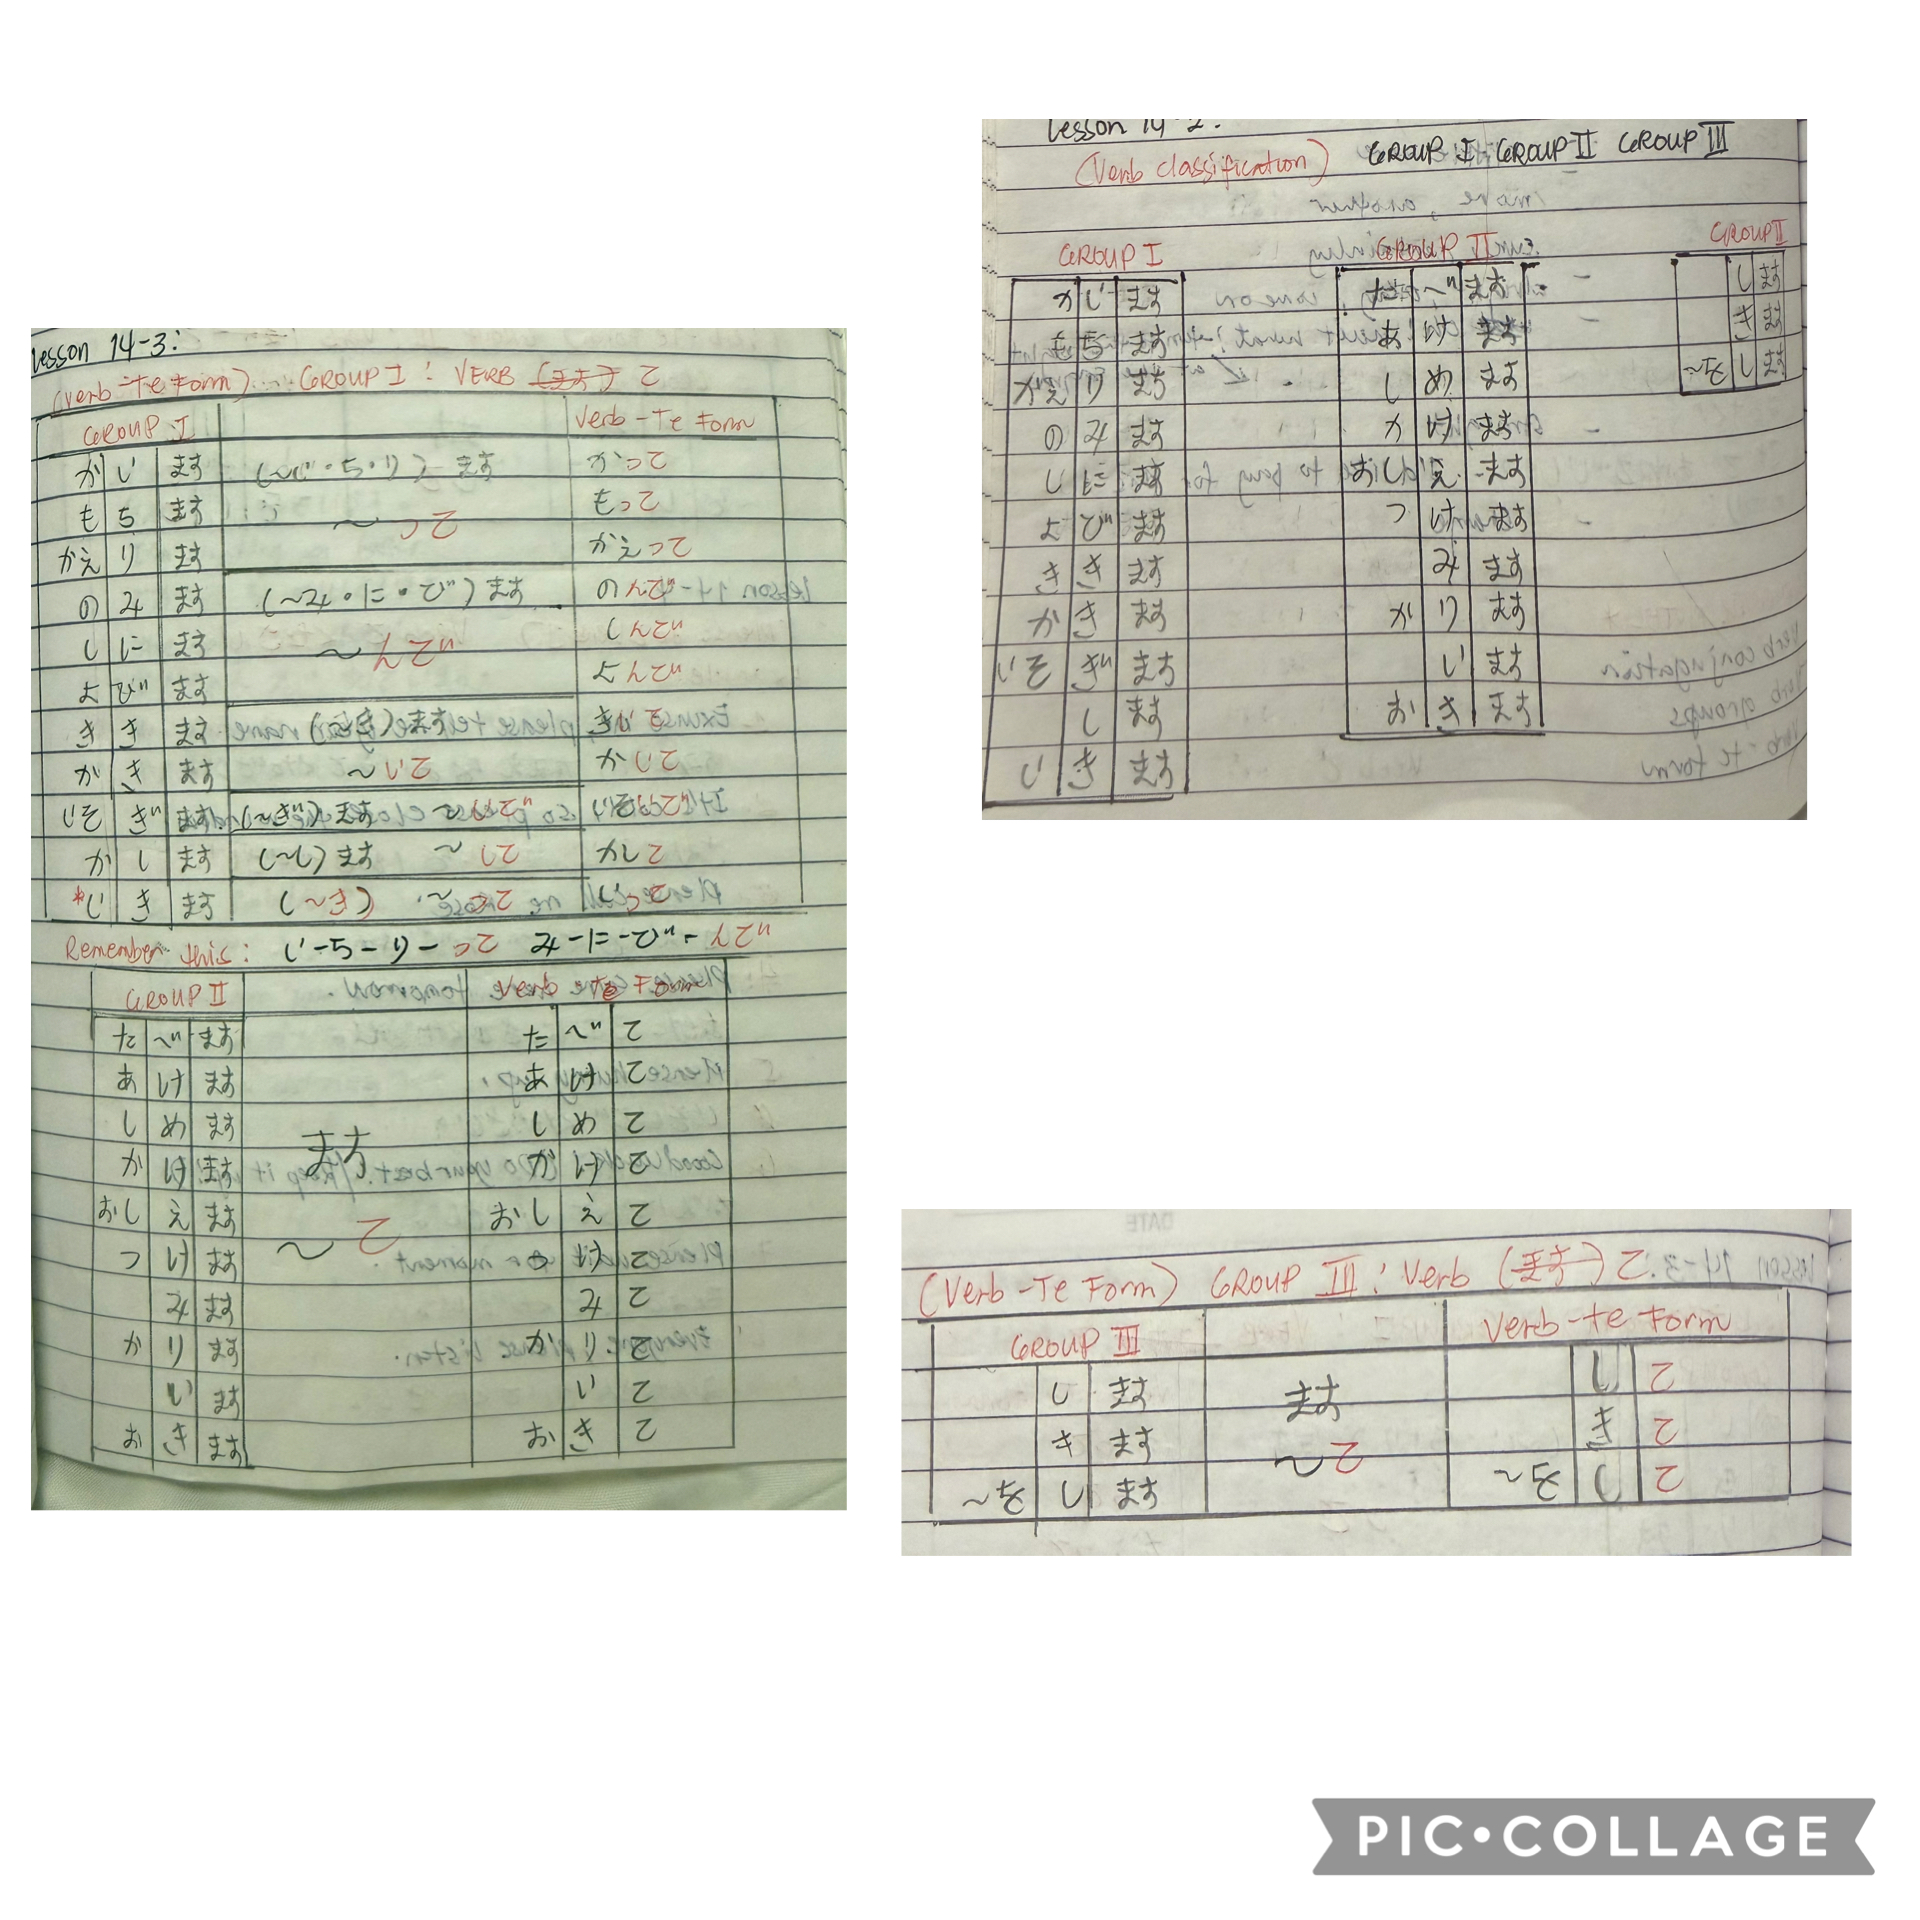 Lesson 14-3:
(Verb -Te Form) GROUP I : VERB (ます) て
GROUP I Verb -Te Form
か い ます (~い・ち・り) ます かって
も ち ます ~って もって
かえ り ます かえって
の み ます (~み・に・び) ます のんで
し に ます ~んで しんで
よ び ます よんで
き き ます (~き) ます きいて
か き ます ~いて かいて
いそ ぎ ます (~ぎ) ます ~いで いそいで
か し ます (~し) ます ~して かして
*い き ます (~き) ~って いって
Remember this: い-ち-り-って み-に-び-んで
GROUP II Verb te Form
た べ ます た べ て
あ け ます あ け て
し め ます し め て
か け ます ます か け て
おし え ます ~て おし え て
つ け ます つ け て
み ます み て
か り ます か り て
い ます い て
お き ます お き て
Lesson 14-2:
(Verb classification) GROUP I GROUP II GROUP III
GROUP I GROUP II GROUP II
か い ます た べ ます し ます
も ち ます あ け ます き ます
かえ り ます し め ます ~を し ます
の み ます か け ます
し に ます おし え ます
よ び ます つ け ます
き き ます み ます
か き ます か り ます
いそ ぎ ます い ます
し ます お き ます
い き ます
(Verb -Te Form) GROUP III : Verb (ます) て
GROUP III Verb-te Form
し ます ます し て
き ます ~て き て
~を し ます ~を し て
PIC•COLLAGE